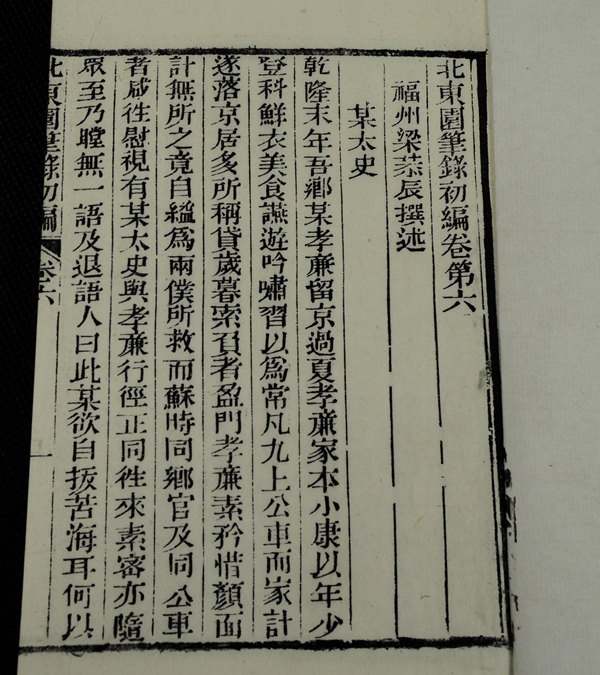 北東園筆錄初編卷第六
福州梁恭辰撰述
某太史
乾隆末年吾鄉某孝亷留京過夏孝亷家本小康以年少
登科鮮衣美食讌遊吟嘯習以爲常凡九上公車而家計
遂落京居多所稱貸歲暮索負者盈門孝亷素矜惜顏面
計無所之竟自縊爲兩僕所救而蘇時同鄉官及同公車
者咸徃慰視有某太史與孝亷行徑正同徃來素密亦隨
眾至乃瞠無一語及退語人曰此某欲自拔苦海耳何以
北東園筆錄初編 卷六 一